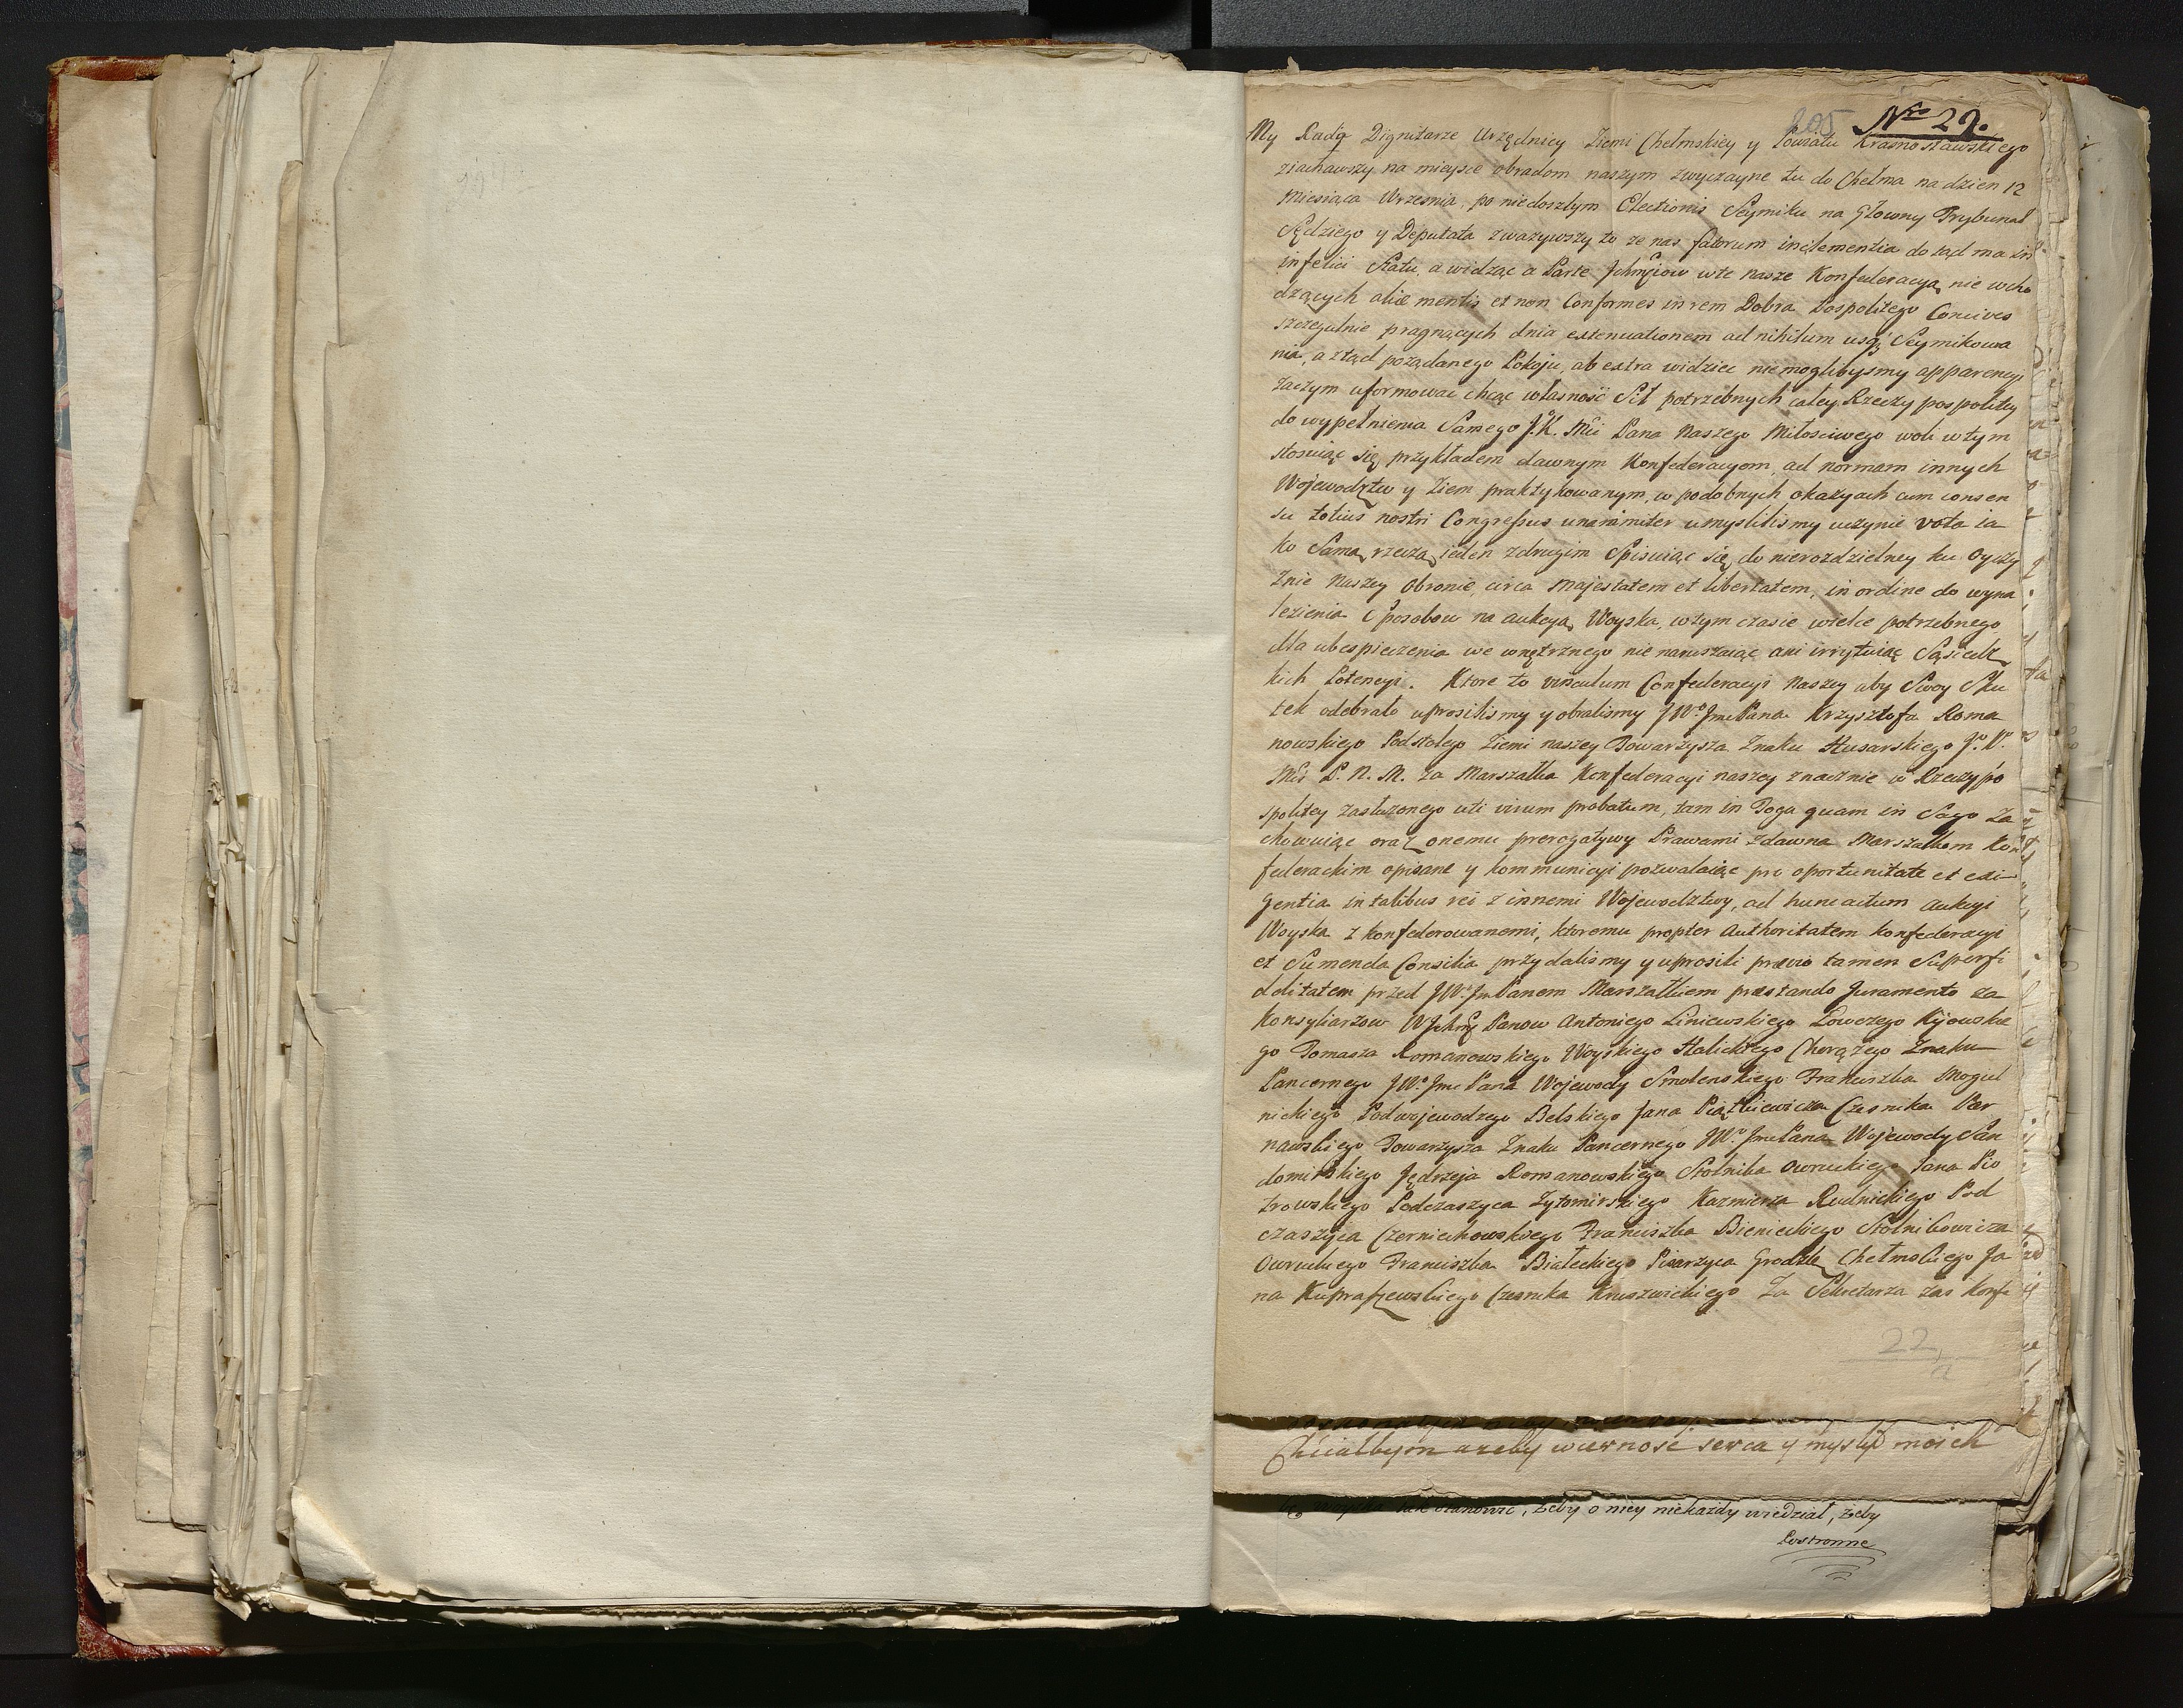 205 Nro 29.
My Rady Dignitarze Urzędnicy Ziemi Chełmskiey y Powiatu Krasnostawskiego
ziachawszy na mieysce obradom naszym zwyczayne tu do Chełma na dzien 12
Miesiąca Wrzesnia, po niedoszłym Electionis Seymiku na Głowny Trybunał
Sędziego y Deputata zwazywszy to ze nas fatorum inclementia do tąd ma in
infelici Statu, a widząc a Parte Jchmciow w te nasze Konfederacyą nie wcho
dzących aliæ mentis et non Conformes in rem Dobra Pospolitego Concives
szczegulnie pragnących dnia extenuationem ad nihilum usq Seymikowa
nia, a ztąd pożądanego Pokoju, ab extra widziec niemoglibysmy apparencyi
zaczym uformowac chcąc własność Sił potrzebnych całey Rzeczy pospolitey
do wypełnienia Samego J.K. Mci Pana Naszego Miłosciwego woli w tym
stosuiąc się przykładem dawnym Konfederacyom, ad normam innych
Wojewodztw y Ziem praktykowanym, w podobnych okazyach cum consen
su totius nostri Congressus unanimiter umyslilismy uczynic vota ia
ko Samą rzeczą ieden z drugim Spisuiąc się do nierozdzielney ku Oyczy
znie Naszey Obronie, circa Majestatem et libertatem, in ordine do wyna
lezienia Sposobow na aukcyą Woyska, w tym czasie wielce potrzebnego
dla ubespieczenia we wnętrznego nie naruszaiąc ani irrytuiąc Sąsiedz
kich Potencyi. Ktore to vinculum Confederacyi Naszey aby Swoy Sku
tek odebrało uprosilismy y obralismy JWo JmcPana Krzysztofa Roma
nowskiego Podstolego Ziemi naszey Towarzysza Znaku Husarskiego J. K.
Mci P. N. M. za Marszałka Konfederacyi naszey znacznie w Rzeczypo
spolitey zasłużonego uti virum probatum, tam in Toga quam in Sago Za
chowuiąc oraz onemu prerogatywy Prawami zdawna Marszałkom Kon
federackim opisane y kommunicyi pozwalaiąc pro oportunitate et exi
gentia in talibus rei z innemi Wojewodztwy, ad hunc actum aukcyi
Woyska z konfederowanemi, ktoremu propter Authoritatem konfederacyi
et Sumenda Consilia przydalismy y uprosili prævio tamen Super fi
delitatem przed JWo JmPanem Marszałkiem præstando Juramento za
Konsyliarzow WJchmc Panow Antoniego Liniewskiego Łowczego Kijowskie
go Tomasza Romanowskiego Woyskiego Halickiego Chorążego Znaku
Pancernego JWo Jmc Pana Wojewody Smolenskiego Franciszka Mogiel
nickiego Podwojewodzego Belskiego Jana Piątkiewicza Czesnika Par
nawskiego Towarzysza Znaku Pancernego JWo JmcPana Wojewody San
domirskiego Jędrzeja Romanowskiego Stolnika Owruckiego Jana Pio
trowskiego Podczaszyca Zytomirskiego Kazmierza Rudnickiego Pod
czaszyca Czerniechowskiego Franciszka Bienieckiego Stolnikowicza
Owruckiego Franciszka Białeckiego Pisarzyca Grodzk Chełmskiego Ja
na Kupraszewskiego Czesnika Kruszwickiego Za Sekretarza zas Konfe
22
Chciałbym azeby wiernosc serca y mysli moich
stanowic, żeby o niey niekażdy wiedział, żeby
Postronne